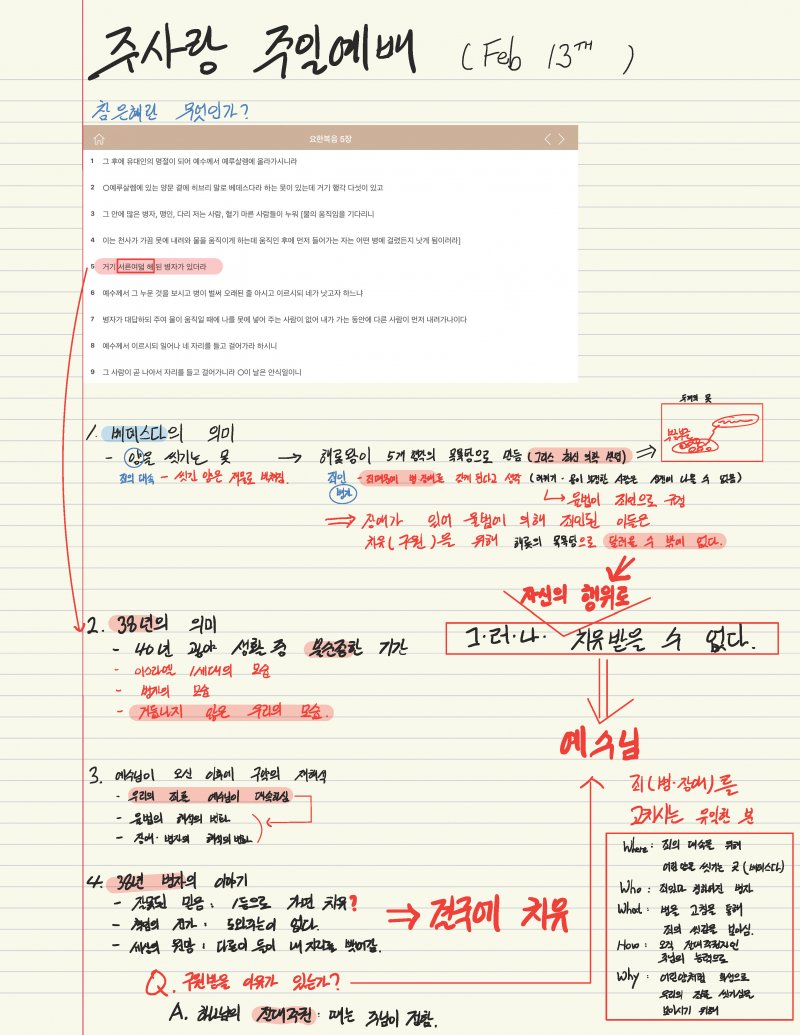 주사랑 주일예배 (Feb 13th)
참 은혜란 무엇인가?
요한복음 5장
1 그 후에 유대인의 명절이 되어 예수께서 예루살렘에 올라가시니라
2 ○예루살렘에 있는 양문 곁에 히브리 말로 베데스다라 하는 못이 있는데 거기 행각 다섯이 있고
3 그 안에 많은 병자, 맹인, 다리 저는 사람, 혈기 마른 사람들이 누워 [물의 움직임을 기다리니
4 이는 천사가 가끔 못에 내려와 물을 움직이게 하는데 움직인 후에 먼저 들어가는 자는 어떤 병에 걸렸든지 낫게 됨이러라]
5 거기 서른여덟 해 된 병자가 있더라
6 예수께서 그 누운 것을 보시고 병이 벌써 오래된 줄 아시고 이르시되 네가 낫고자 하느냐
7 병자가 대답하되 주여 물이 움직일 때에 나를 못에 넣어 주는 사람이 없어 내가 가는 동안에 다른 사람이 먼저 내려가나이다
8 예수께서 이르시되 일어나 네 자리를 들고 걸어가라 하시니
9 그 사람이 곧 나아서 자리를 들고 걸어가니라 ○이 날은 안식일이니
1. 베데스다의 의미
- 양을 씻기는 못 → 헤롯왕이 5개 행각의 목욕탕으로 만듦 (그리스 최신 의학 병명)
죄의 대속 - 씻긴 양은 제물로 바쳐짐.
죄인 - 죄때문에 병·장애로 갖게 된다고 생각 (레위기 - 몸이 부정한 사람은 성전에 나올 수 없음)
병자
↳ 율법이 죄인으로 규정
⇒ 장애가 있어 율법에 의해 죄인된 이들은
치유(구원)를 위해 헤롯의 목욕탕으로 달려올 수 밖에 없다.
자신의 행위로
그·러·나· 치유받을 수 없다.
예수님
죄(병·장애)를
고치시는 유일한 분
2. 38년의 의미
- 40년 광야 생활 중 불순종한 기간
- 이스라엘 1세대의 모습
- 병자의 모습
- 거듭나지 않은 우리의 모습.
3. 예수님이 오신 이후에 구약의 재해석
- 우리의 죄를 예수님이 대속하심
- 율법의 해석의 변화
- 장애·병자의 해석의 변화
4. 38년 병자의 이야기
- 잘못된 믿음 : 1등으로 가면 치유?
- 책임의 전가 : 도와주는이 없다.
- 세상의 원망 : 다른이 들이 내 자리를 뺏어감.
⇒ 결국에 치유
Q. 구원받을 이유가 있는가?
A. 하나님의 절대주권 : 때는 주님이 정함.
Where : 죄의 대속을 위해
어린 양을 씻기는 곳 (베데스다)
Who : 죄인으로 정해어진 병자
What : 병을 고침을 통해
죄의 씻김을 보이심.
How : 오직 절대주권자인
주님의 능력으로
Why : 어린양처럼 희생으로
우리의 죄를 씻기심을
보이시기 위해